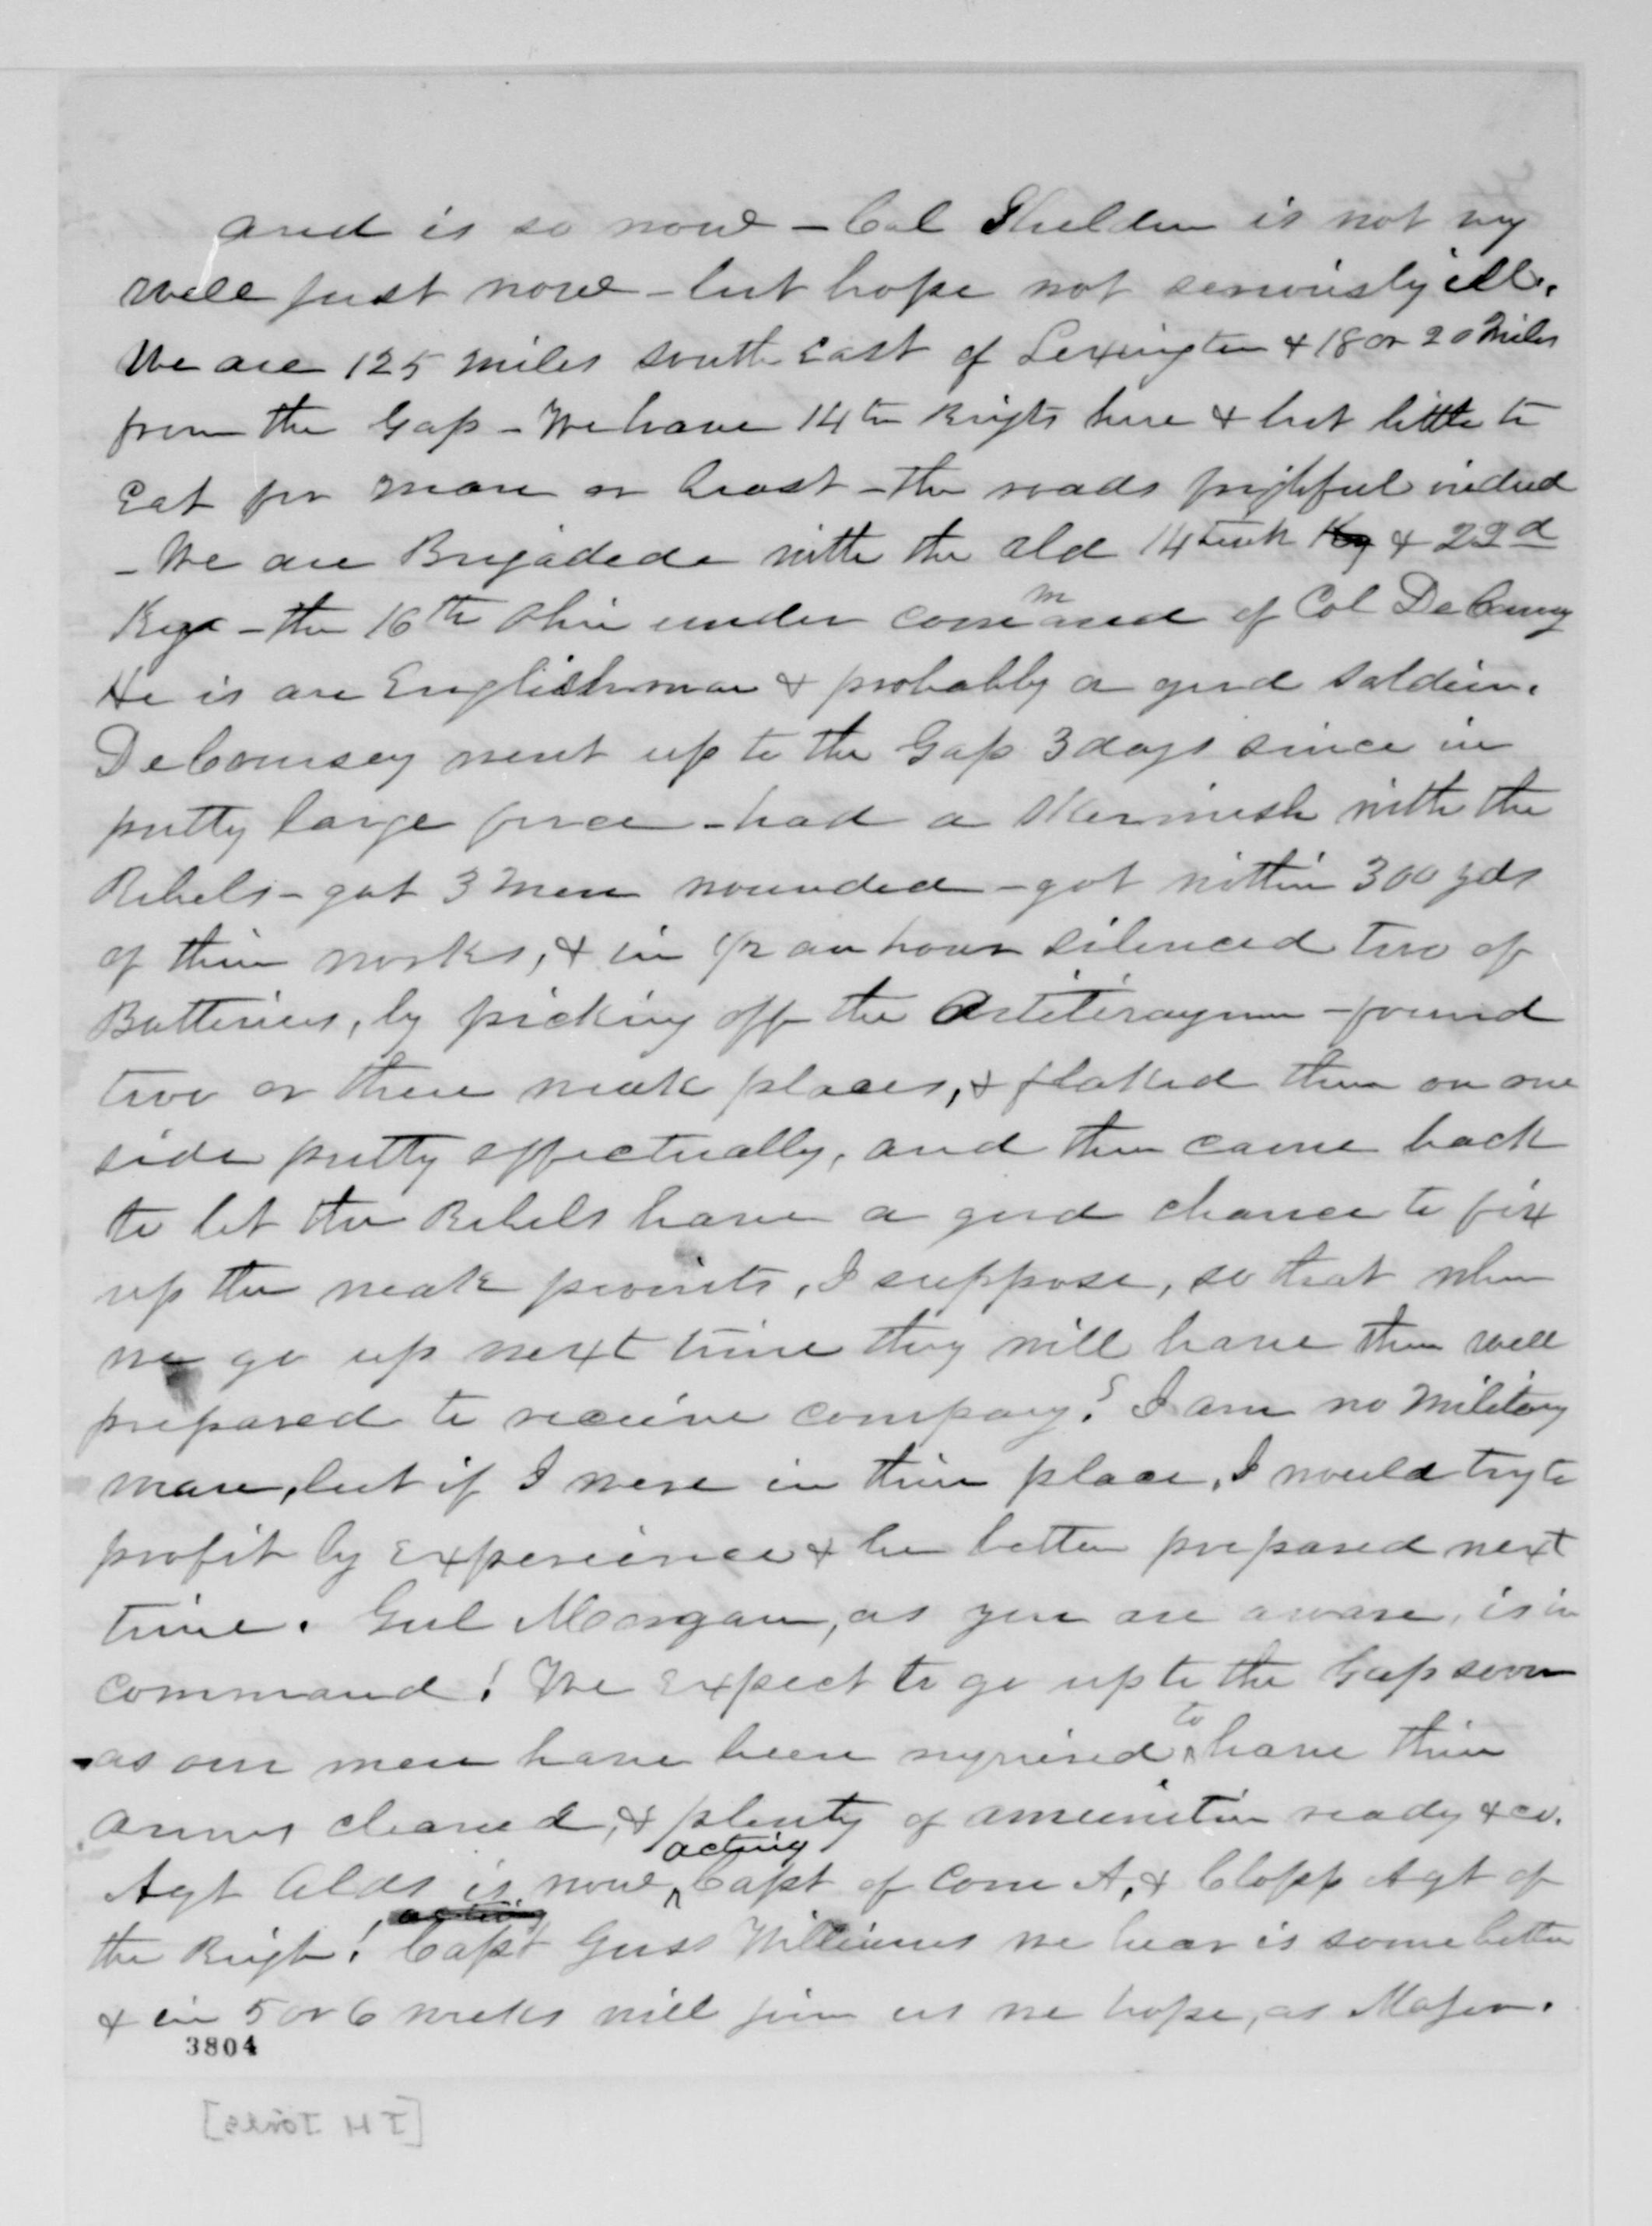 and is so now – Col Sheldon is not very
well just now – but hope not seriously ill.
We are 125 miles south East of Lexington & 18 or 20 Miles
from the Gap – We have 14 Regts here & but little to
Eat for man or beast – the roads frightful indeed
– We are Brigaded with the old 14 Ky & 22d
Kys – the 16th Ohio under command of Col DeCourcy
He is an Englishman & probably a good Soldier.
DeCoursey went up to the Gap 3 days since in
pretty large force – had a skirmish with the
Rebels – got 3 men wounded – got within 300 yds
of their works, & in 1/2 an hour silenced two of
Batteries, by picking off the Artillerymen – found
two or three weak places, & flaked them on one
side pretty effectually, and then came back
to let the Rebels have a good chance to fix
up the weak points, I suppose, so that when
we go up next time they will have them well
prepared to receive company! I am no Military
man, but if I were in their place, I would try to
profit by Experience & be better prepared next
time. Genl Morgan, as you are aware, is in
command! We Expect to go up to the Gap soon
as our men have been required to have their
arms cleaned, & plenty of amunition ready &c.
Agt Olds is now acting Capt of Com A, & Clapp Agt of
the Regt! Capt Guss Williams we hear is some better
& in 5 or 6 weeks will join us we hope, as Major.
3804
[I H Jones]